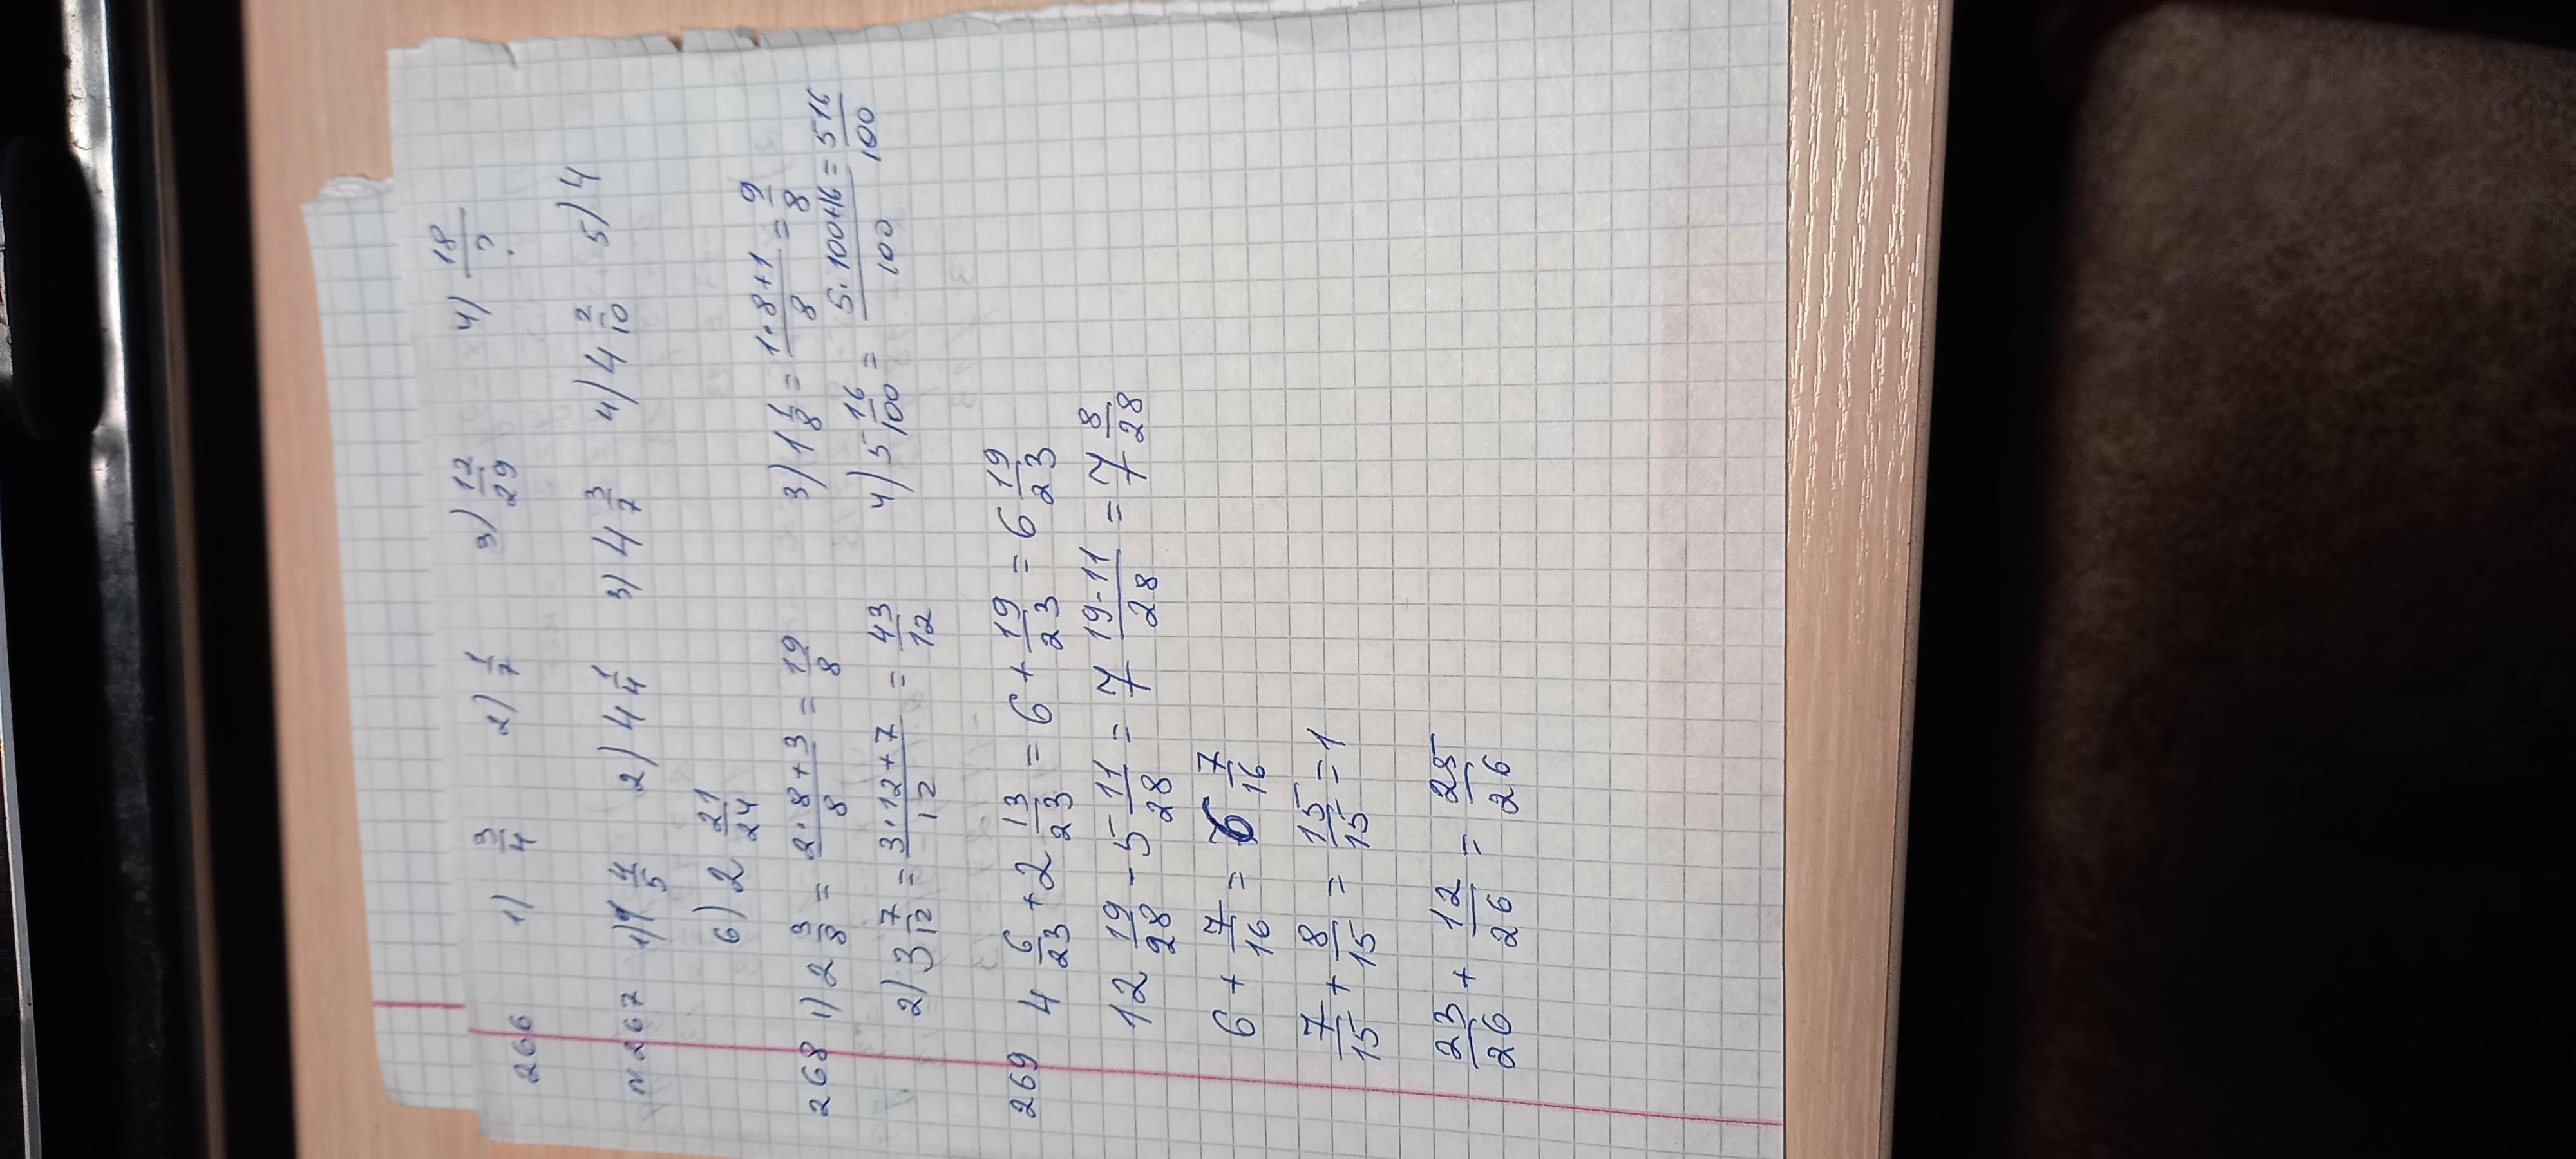 266 1) 3/4 2) 1/7 3) 12/29 4) 18/?
N 267 1) 4/5 2) 4 1/4 3) 4 3/7 4) 4 2/10 5) 4
6) 2 21/24
268 1) 2 3/8 = 2·8+3/8 = 19/8 3) 1 1/8 = 1·8+1/8 = 9/8
2) 3 7/12 = 3·12+7/12 = 43/12 4) 5 16/100 = 5·100+16/100 = 516/100
269 4 6/23 + 2 13/23 = 6 + 19/23 = 6 19/23
12 19/28 - 5 11/28 = 7 19-11/28 = 7 8/28
6 + 7/16 = 6 7/16
7/15 + 8/15 = 15/15 = 1
23/26 + 12/26 = 25/26